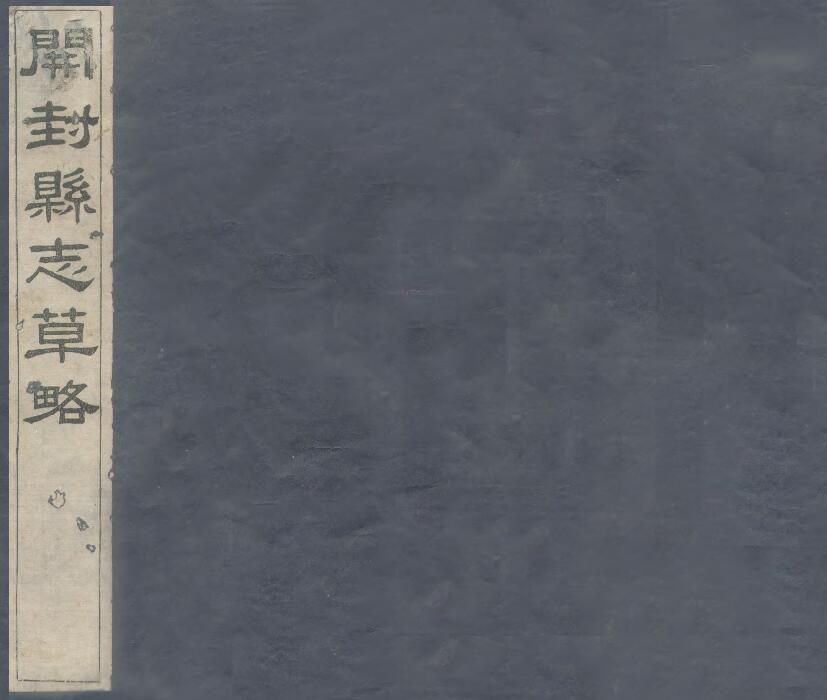 開封縣志草略